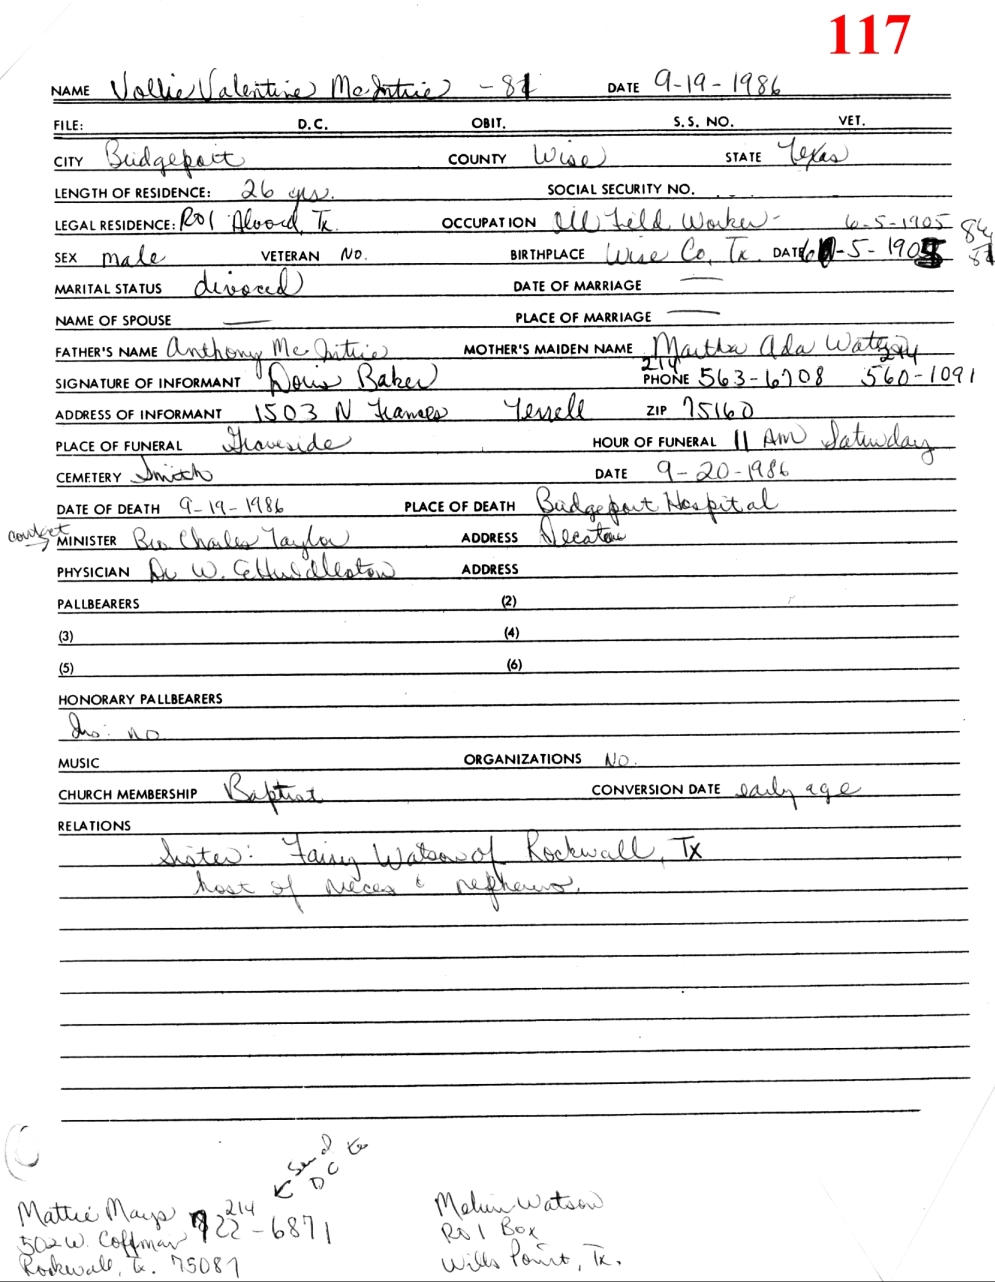 117
NAME Vollie Valentine McIntire - 81 DATE 9-19-1986
FILE: D.C. OBIT. S.S. NO. VET.
CITY Bridgeport COUNTY Wise STATE Texas
LENGTH OF RESIDENCE: 26 yrs. SOCIAL SECURITY NO.
LEGAL RESIDENCE: R01 Alvord, Tx. OCCUPATION Oil Field Worker - 6-5-1905 86
SEX male VETERAN No. BIRTHPLACE Wise Co, Tx. DATE 6-5-1905 81
MARITAL STATUS divoced DATE OF MARRIAGE —
NAME OF SPOUSE — PLACE OF MARRIAGE —
FATHER'S NAME Anthony McIntire MOTHER'S MAIDEN NAME Martha Ada Watson
214 214
SIGNATURE OF INFORMANT Doris Baker PHONE 563-6708 560-1091
ADDRESS OF INFORMANT 1503 N Frances Terrell ZIP 75160
PLACE OF FUNERAL Graveside HOUR OF FUNERAL 11 AM Saturday
CEMETERY Smith DATE 9-20-1986
DATE OF DEATH 9-19-1986 PLACE OF DEATH Bridgeport Hospital
contact
MINISTER Bro Charles Taylor ADDRESS Decatur
PHYSICIAN Dr W. Huddleston ADDRESS
PALLBEARERS (2)
(3) (4)
(5) (6)
HONORARY PALLBEARERS
Ins: no
MUSIC ORGANIZATIONS No.
CHURCH MEMBERSHIP Baptist CONVERSION DATE early age
RELATIONS
Sister: Fairy Watson of Rockwall, Tx
host of neices & nephews.
Send
DC to
Mattie Mays 214 722-6871
502 W. Coffman
Rockwall, Tx. 75087
Melvin Watson
R01 Box
Wills Point, Tx.